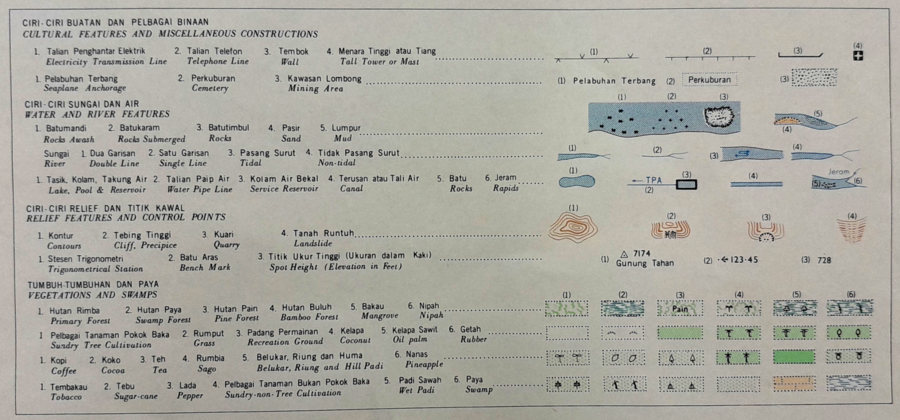 CIRI-CIRI BUATAN DAN PELBAGAI BINAAN
CULTURAL FEATURES AND MISCELLANEOUS CONSTRUCTIONS
1. Talian Penghantar Elektrik 2. Talian Telefon 3. Tembok 4. Menara Tinggi atau Tiang (1) (2) (3) (4)
Electricity Transmission Line Telephone Line Wall Tall Tower or Mast
1. Pelabuhan Terbang 2. Perkuburan 3. Kawasan Lombong (1) Pelabuhan Terbang (2) Perkuburan (3)
Seaplane Anchorage Cemetery Mining Area
CIRI-CIRI SUNGAI DAN AIR (1) (2) (3)
WATER AND RIVER FEATURES (5)
1. Batumandi 2. Batukaram 3. Batutimbul 4. Pasir 5. Lumpur (4)
Rocks Awash Rocks Submerged Rocks Sand Mud
Sungai 1. Dua Garisan 2. Satu Garisan 3. Pasang Surut 4. Tidak Pasang Surut (1) (2) (3) (4)
River Double Line Single Line Tidal Non-tidal
1. Tasik, Kolam, Takung Air 2. Talian Paip Air 3. Kolam Air Bekal 4. Terusan atau Tali Air 5. Batu 6. Jeram (1) TPA (2) (3) (4) Jeram (5) (6)
Lake, Pool & Reservoir Water Pipe Line Service Reservoir Canal Rocks Rapids
CIRI-CIRI RELIEF DAN TITIK KAWAL
RELIEF FEATURES AND CONTROL POINTS
1. Kontur 2. Tebing Tinggi 3. Kuari 4. Tanah Runtuh (1) (2) (3) (4)
Contours Cliff, Precipice Quarry Landslide
1. Stesen Trigonometri 2. Batu Aras 3. Titik Ukur Tinggi (Ukuran dalam Kaki) (1) 7174 Gunung Tahan (2) 123·45 (3) 728
Trigonometrical Station Bench Mark Spot Height (Elevation in Feet)
TUMBUH-TUMBUHAN DAN PAYA
VEGETATIONS AND SWAMPS (1) (2) (3) (4) (5) (6)
1. Hutan Rimba 2. Hutan Paya 3. Hutan Pain 4. Hutan Buluh 5. Bakau 6. Nipah Pain
Primary Forest Swamp Forest Pine Forest Bamboo Forest Mangrove Nipah
1 Pelbagai Tanaman Pokok Baka 2. Rumput 3. Padang Permainan 4. Kelapa 5. Kelapa Sawit 6. Getah
Sundry Tree Cultivation Grass Recreation Ground Coconut Oil palm Rubber
1. Kopi 2. Koko 3. Teh 4. Rumbia 5. Belukar, Riung dan Huma 6. Nanas
Coffee Cocoa Tea Sago Belukar, Riung and Hill Padi Pineapple
1. Tembakau 2. Tebu 3. Lada 4. Pelbagai Tanaman Bukan Pokok Baka 5. Padi Sawah 6. Paya
Tobacco Sugar-cane Pepper Sundry-non-Tree Cultivation Wet Padi Swamp